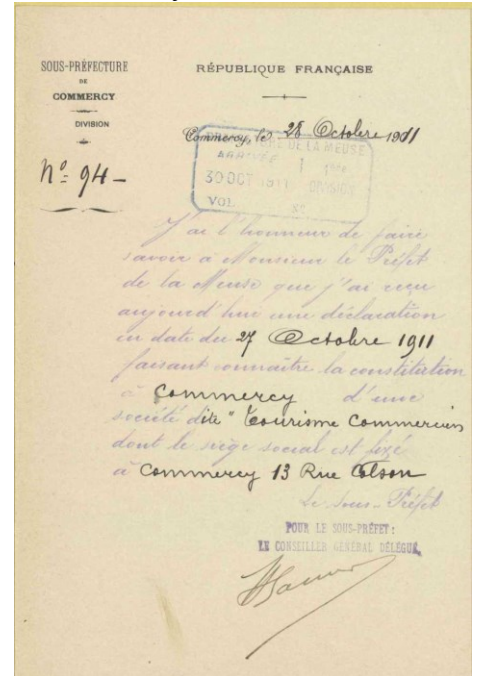 SOUS-PRÉFECTURE
DE
COMMERCY
DIVISION
Nº 94 –
RÉPUBLIQUE FRANÇAISE
Commercy, le 28 Octobre 1911
DE LA MEUSE
ARRIVÉE 1ère
30 OCT 1911 DIVISION
VOL. Nº
J'ai l'honneur de faire
savoir à Monsieur le Préfet
de la Meuse que j'ai reçu
aujourd'hui une déclaration
en date du 27 Octobre 1911
faisant connaître la constitution
à Commercy d'une
société dite "Tourisme Commercien
dont le siège social est fixé
à Commercy 13 Rue Colson
Le Sous-Préfet
POUR LE SOUS-PRÉFET :
LE CONSEILLER GÉNÉRAL DÉLÉGUÉ,